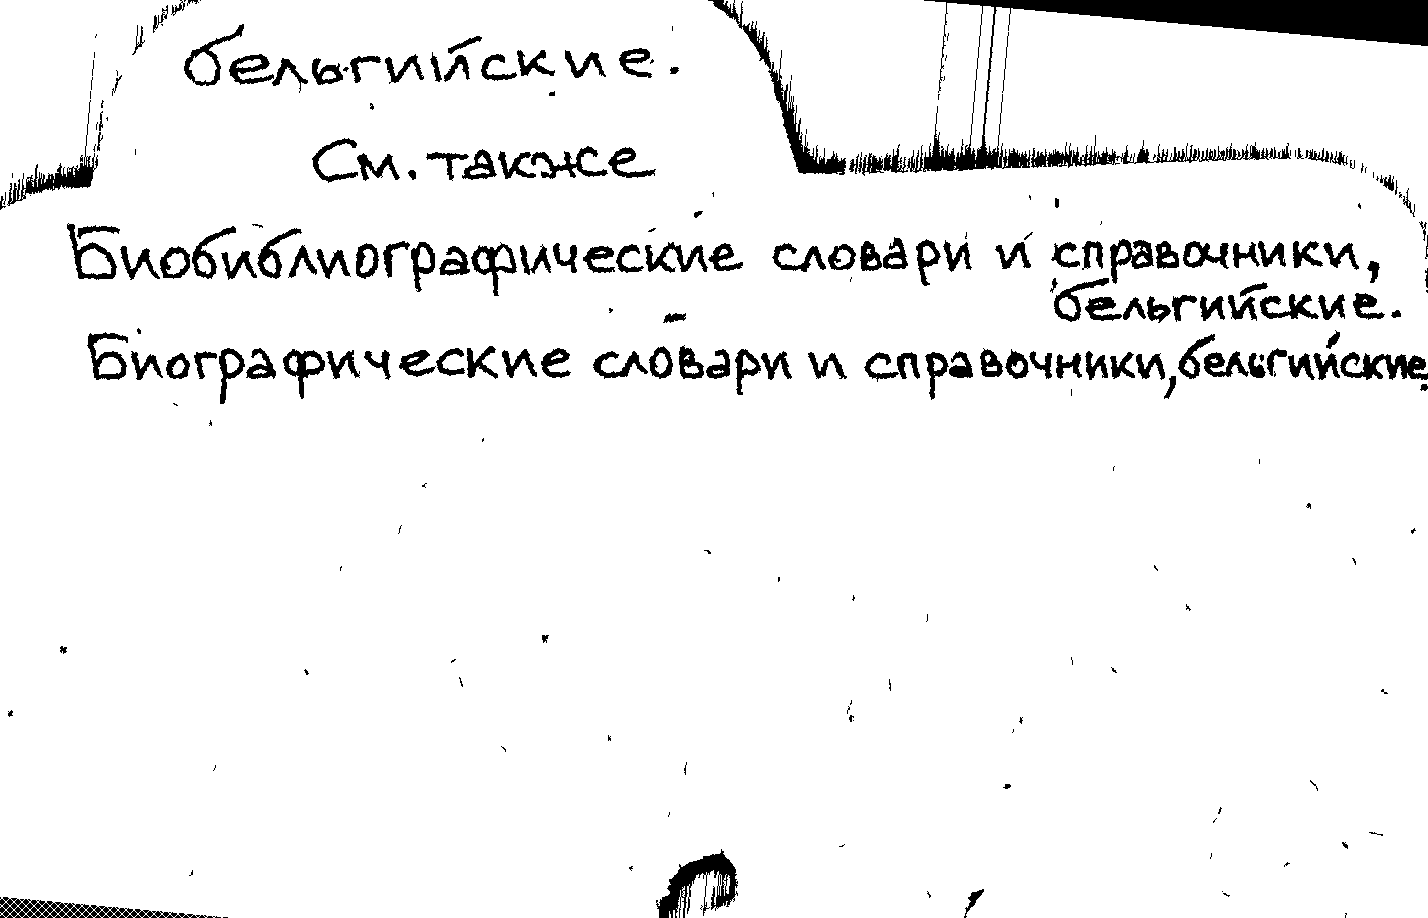 бельгийские.
См. также
Биобиблиографические словари и справочники,
бельгийские.
Биографические словари и справочники, бельгийские.